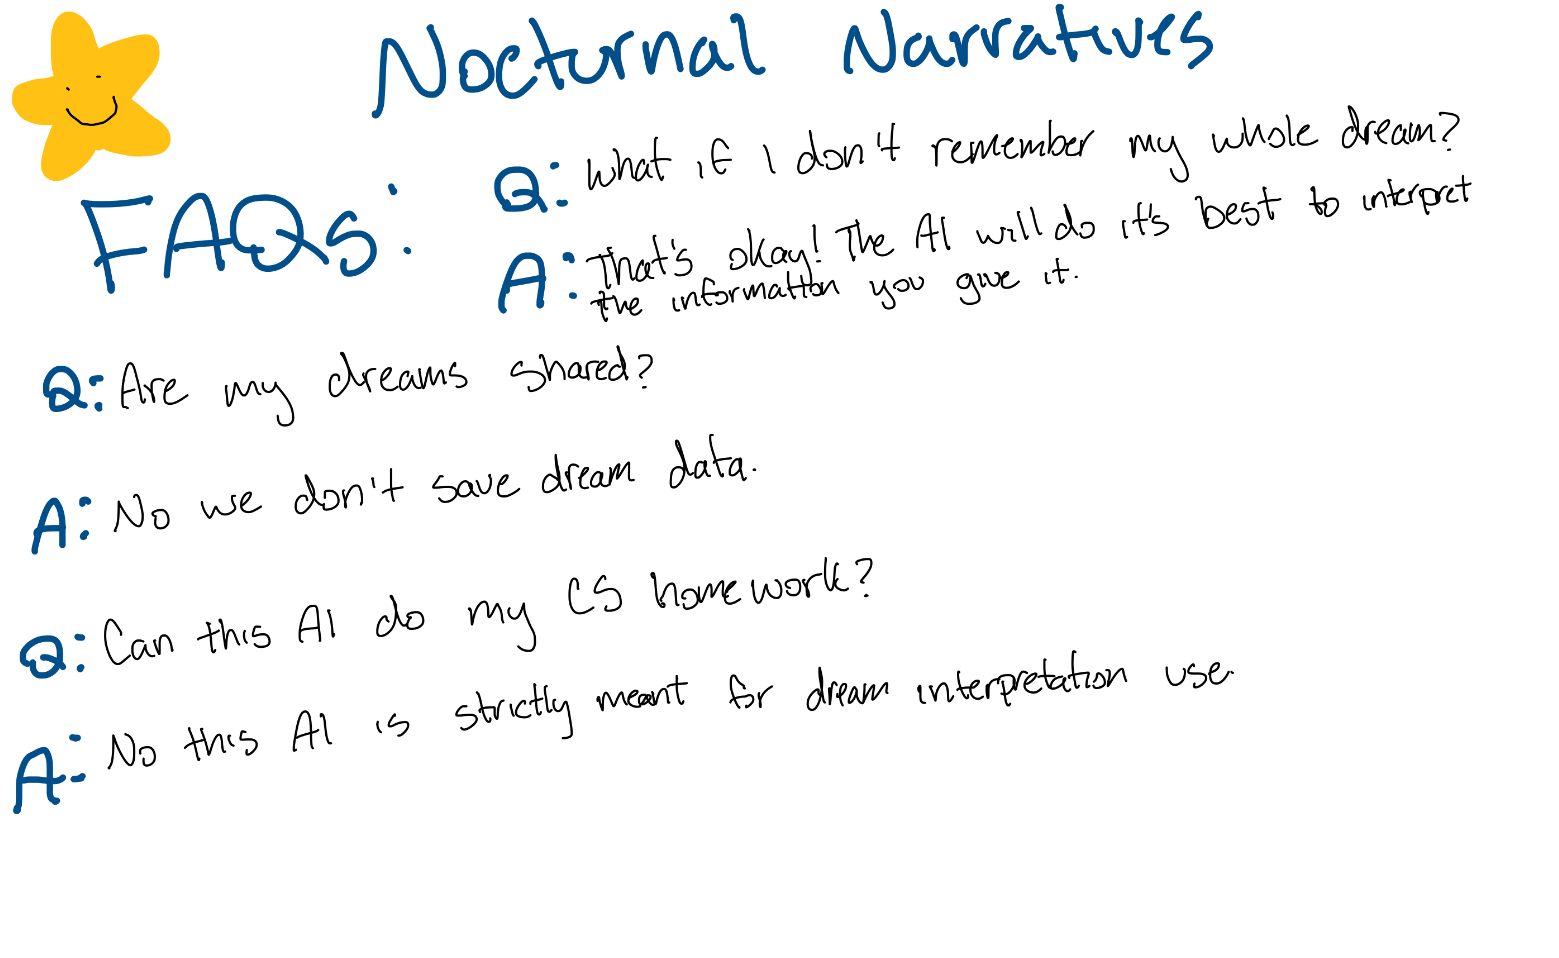 Nocturnal Narratives
FAQs:
Q: What if I don't remember my whole dream?
A: That's okay! The AI will do it's best to interpret
the information you give it.
Q: Are my dreams shared?
A: No we don't save dream data.
Q: Can this AI do my CS homework?
A: No this AI is strictly meant for dream interpretation use.